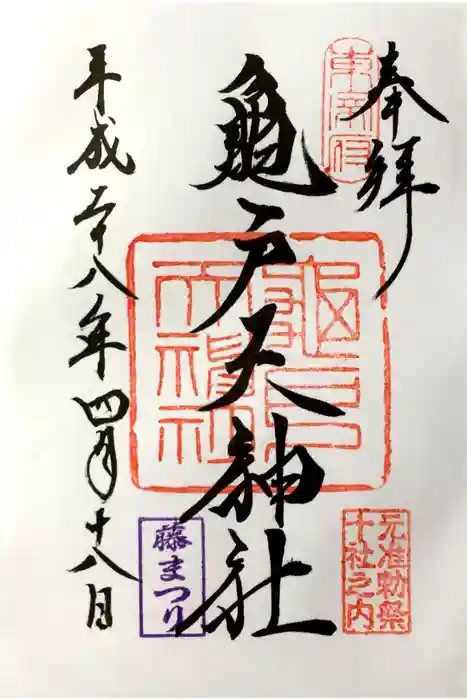 奉拝
東宰府
亀戸天神社
亀戸天神社
元准勅祭
十社之内
藤まつり
平成二十八年四月十八日